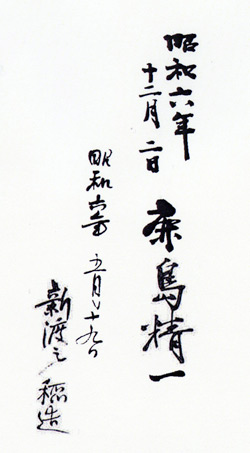 昭和六年
十二月二日
島精一
昭和六年 五月十九日
新渡戸稲造